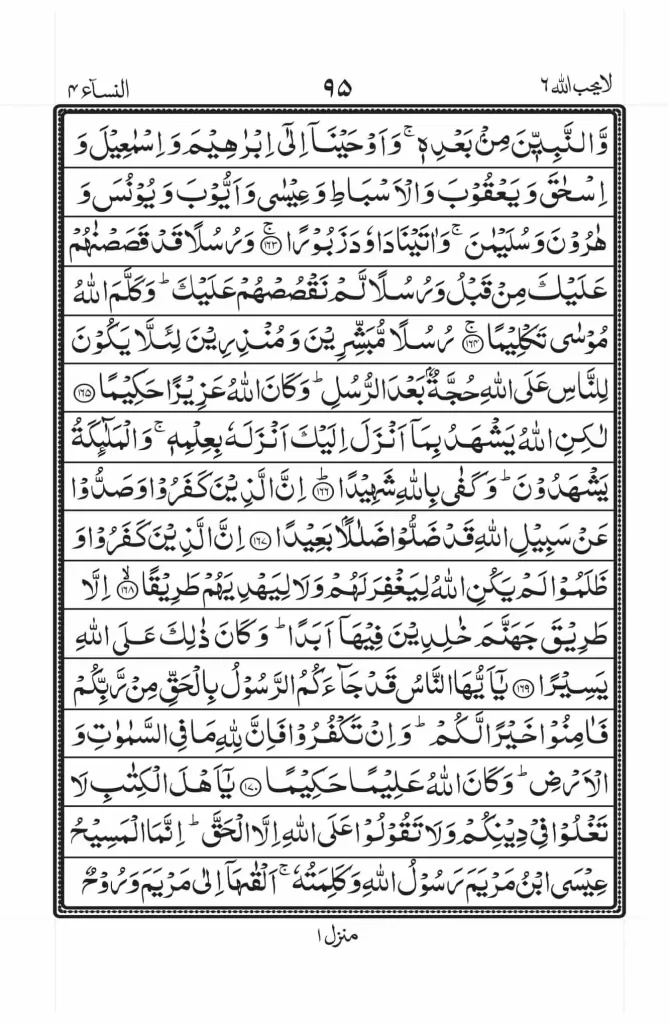 لايحب الله ٦
٩٥
النساۤء ٤
وَّالنَّبِيّٖنَ مِنْۢ بَعْدِهٖ ۚ وَاَوْحَيْنَاۤ اِلٰۤى اِبْرٰهِيْمَ وَاِسْمٰعِيْلَ وَ
اِسْحٰقَ وَيَعْقُوْبَ وَالْاَسْبَاطِ وَعِيْسٰى وَاَيُّوْبَ وَيُوْنُسَ وَ
هٰرُوْنَ وَسُلَيْمٰنَ ۚ وَاٰتَيْنَا دَاوٗدَ زَبُوْرًا ۚ ﴿١٦٣﴾ وَرُسُلًا قَدْ قَصَصْنٰهُمْ
عَلَيْكَ مِنْ قَبْلُ وَرُسُلًا لَّمْ نَقْصُصْهُمْ عَلَيْكَ ؕ وَكَلَّمَ اللهُ
مُوْسٰى تَكْلِيْمًا ۚ ﴿١٦٤﴾ رُسُلًا مُّبَشِّرِيْنَ وَمُنْذِرِيْنَ لِئَلَّا يَكُوْنَ
لِلنَّاسِ عَلَى اللهِ حُجَّةٌۢ بَعْدَ الرُّسُلِ ؕ وَكَانَ اللهُ عَزِيْزًا حَكِيْمًا ﴿١٦٥﴾
لٰكِنِ اللهُ يَشْهَدُ بِمَاۤ اَنْزَلَ اِلَيْكَ اَنْزَلَهٗ بِعِلْمِهٖ ۚ وَالْمَلٰٓئِكَةُ
يَشْهَدُوْنَ ؕ وَكَفٰى بِاللهِ شَهِيْدًا ؕ ﴿١٦٦﴾ اِنَّ الَّذِيْنَ كَفَرُوْا وَصَدُّوْا
عَنْ سَبِيْلِ اللهِ قَدْ ضَلُّوْا ضَلٰلًۢا بَعِيْدًا ﴿١٦٧﴾ اِنَّ الَّذِيْنَ كَفَرُوْا وَ
ظَلَمُوْا لَمْ يَكُنِ اللهُ لِيَغْفِرَ لَهُمْ وَلَا لِيَهْدِيَهُمْ طَرِيْقًا ۙ ﴿١٦٨﴾ اِلَّا
طَرِيْقَ جَهَنَّمَ خٰلِدِيْنَ فِيْهَاۤ اَبَدًا ؕ وَكَانَ ذٰلِكَ عَلَى اللهِ
يَسِيْرًا ﴿١٦٩﴾ يٰۤاَيُّهَا النَّاسُ قَدْ جَآءَكُمُ الرَّسُوْلُ بِالْحَقِّ مِنْ رَّبِّكُمْ
فَاٰمِنُوْا خَيْرًا لَّكُمْ ؕ وَاِنْ تَكْفُرُوْا فَاِنَّ لِلّٰهِ مَا فِى السَّمٰوٰتِ وَ
الْاَرْضِ ؕ وَكَانَ اللهُ عَلِيْمًا حَكِيْمًا ﴿١٧٠﴾ يٰۤاَهْلَ الْكِتٰبِ لَا
تَغْلُوْا فِىْ دِيْنِكُمْ وَلَا تَقُوْلُوْا عَلَى اللهِ اِلَّا الْحَقَّ ؕ اِنَّمَا الْمَسِيْحُ
عِيْسَى ابْنُ مَرْيَمَ رَسُوْلُ اللهِ وَكَلِمَتُهٗ ۚ اَلْقٰىهَاۤ اِلٰى مَرْيَمَ وَرُوْحٌ
منزل ١